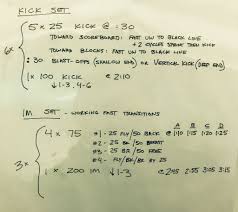 KICK SET
5 x 25 KICK @ :30
TOWARD SCOREBOARD: FAST UW TO BLACK LINE
+ 2 CYCLES SPRINT THEN KICK
TOWARD BLOCKS: FAST UW TO BLACK LINE
6x
:30 BLAST-OFFS (SHALLOW END) OR VERTICAL KICK (DEEP END)
1 x 100 KICK @ 2:10
↓1-3, 4-6
IM SET - WORKING FAST TRANSITIONS
A B C D
4 x 75 #1 - 25 FLY/50 BACK @ 1:10 1:15 1:20 1:25
#2 - 25 BK/50 BREAST
#3 - 25 BR/50 FREE
#4 - FLY/BK/BR BY 25
3x
1 x 200 IM ↓1-3 @ 2:45 2:55 3:05 3:15